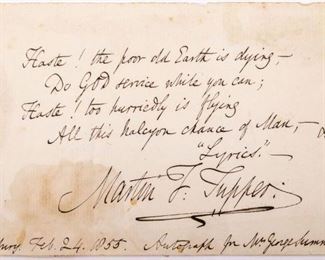 Haste! the poor old Earth is dying,—
Do God service while you can;
Haste! too hurriedly is flying
All this halcyon chance of Man,—
"Lyrics."—
Martin F. Tupper.
bury. Feb. 24. 1855. Autograph for Mr George